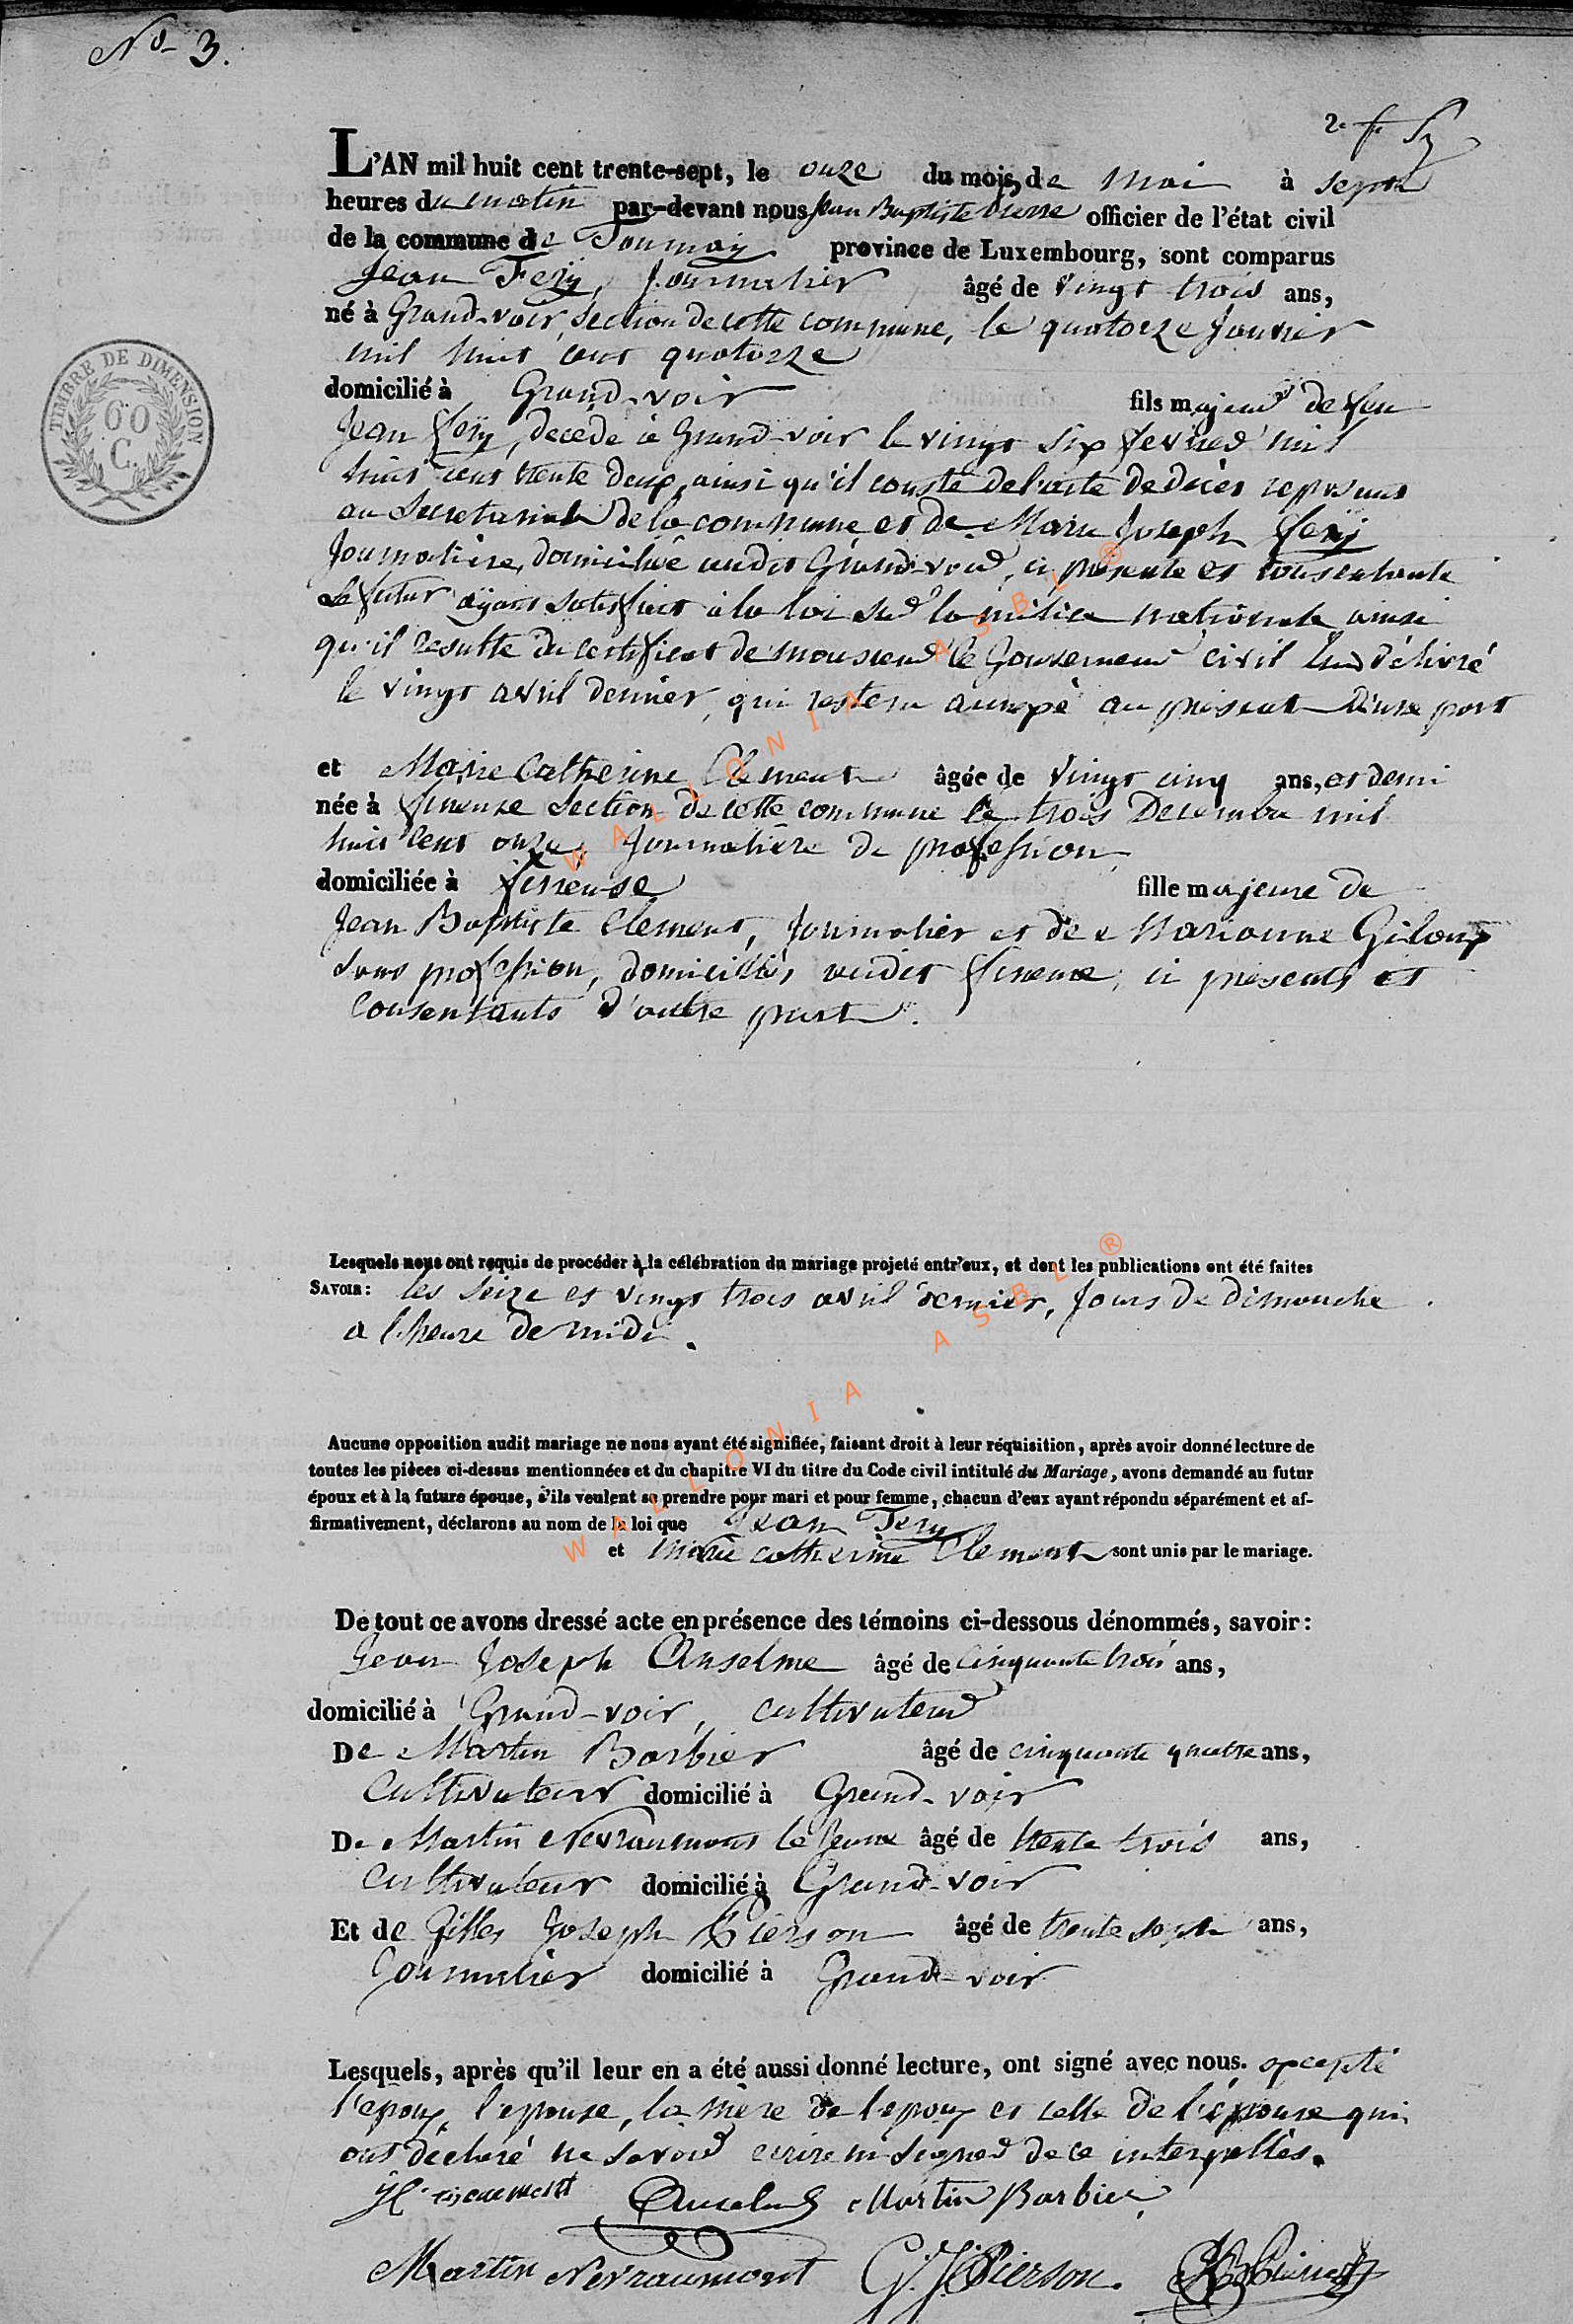 No 3.
L'AN mil huit cent trente-sept, le onze du mois, de mai à sept
heures du matin par-devant nous Jean Baptiste Pierre officier de l'état civil
de la commune de Tournay province de Luxembourg, sont comparus
Jean Fery, Journalier âgé de vingt trois ans,
né à Grand-voir, section de cette commune, le quatorze Janvier
mil huit cent quatorze
domicilié à Grand-voir fils majeur de feu
Jean fery, decédé à Grand-voir le vingt six fevrier mil
huit cent trente deux, ainsi qu'il conste de l'acte de décès reposant
au Secretariat de la commune, et de Marie Joseph fery
Journalière, domiciliée audit Grand-voir, ci presente et consentante
Le futur ayant satisfait à la loi sur la milice nationale ainsi
qu'il resulte du certificat de monsieur le Gouverneur civil lui délivré
le vingt avril dernier, qui restera annexé au présent d'une part
et Marie Catherine Clement âgée de vingt cinq ans, et demi
née à fineuse section de cette commune le trois Decembre mil
huit cent onze, Journalière de profession,
domiciliée à fineuse fille majeure de
Jean Baptiste Clement, Journalier et de Marianne Giloup
sans profession, domiciliés audit fineuse, ci presents et
consentants d'autre part.
Lesquels nous ont requis de procéder à la célébration du mariage projeté entr'eux, et dont les publications ont été faites
SAVOIR: les seize et vingt trois avril dernier, Jours de dimanche
a l'heure de midi.
Aucune opposition audit mariage ne nous ayant été signifiée, faisant droit à leur réquisition, après avoir donné lecture de
toutes les pièces ci-dessus mentionnées et du chapitre VI du titre du Code civil intitulé du Mariage, avons demandé au futur
époux et à la future épouse, s'ils veulent se prendre pour mari et pour femme, chacun d'eux ayant répondu séparément et af-
firmativement, déclarons au nom de la loi que Jean Fery
et Marie catherine Clement sont unis par le mariage.
De tout ce avons dressé acte en présence des témoins ci-dessous dénommés, savoir:
Jean Joseph Anselme âgé de cinquante trois ans,
domicilié à Grand-voir, cultivateur
De Martin Barbier âgé de cinquante quatre ans,
Cultivateur domicilié à Grand-voir
De Martin Nevraumont le Jeune âgé de trente trois ans,
Cultivateur domicilié à Grand-voir
Et de Gilles Joseph Pierson âgé de trente sept ans,
Journalier domicilié à Grand-voir
Lesquels, après qu'il leur en a été aussi donné lecture, ont signé avec nous. excepté
l'epoux, l'epouse, la mère de l'epoux et celle de l'épouse qui
ont declaré ne savoir ecrire ni signer de ce interpellés.
Martin Barbier
Martin Nevraumont G. J. Pierson.
TIMBRE DE DIMENSION
60
C.
WALLONIA ASBL ®
WALLONIA ASBL ®